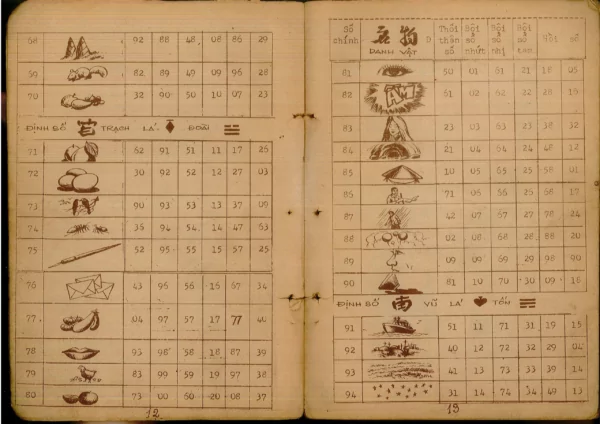 68 92 88 48 08 86 29
69 82 89 49 09 96 28
70 32 90 50 10 07 23
ĐỊNH SỐ TRẠCH LÀ ĐOÀI
71 62 91 51 11 17 25
72 30 92 52 12 27 03
73 90 93 53 13 37 09
74 36 94 54 14 47 63
75 52 95 55 15 57 25
76 43 96 56 16 67 34
77 04 97 57 17 77 40
78 93 98 58 18 87 39
79 83 99 59 19 97 38
80 73 00 60 20 08 37
12
Số chính DANH VẬT Thổi thân số Hội số nhứt Hội số nhì
81 50 01 61 21 18 05
82 ÂM 61 02 62 22 28 16
83 23 03 63 23 38 32
84 21 04 64 24 48 12
85 10 05 65 25 58 01
86 71 06 66 26 68 17
87 42 07 67 27 78 24
88 02 08 68 28 88 20
89 09 09 69 29 98 90
90 81 10 70 30 09 18
ĐỊNH SỐ VŨ LÀ TỐN
91 51 11 71 31 19 15
92 40 12 72 32 29 04
93 41 13 73 33 39 14
94 31 14 74 34 49 13
13